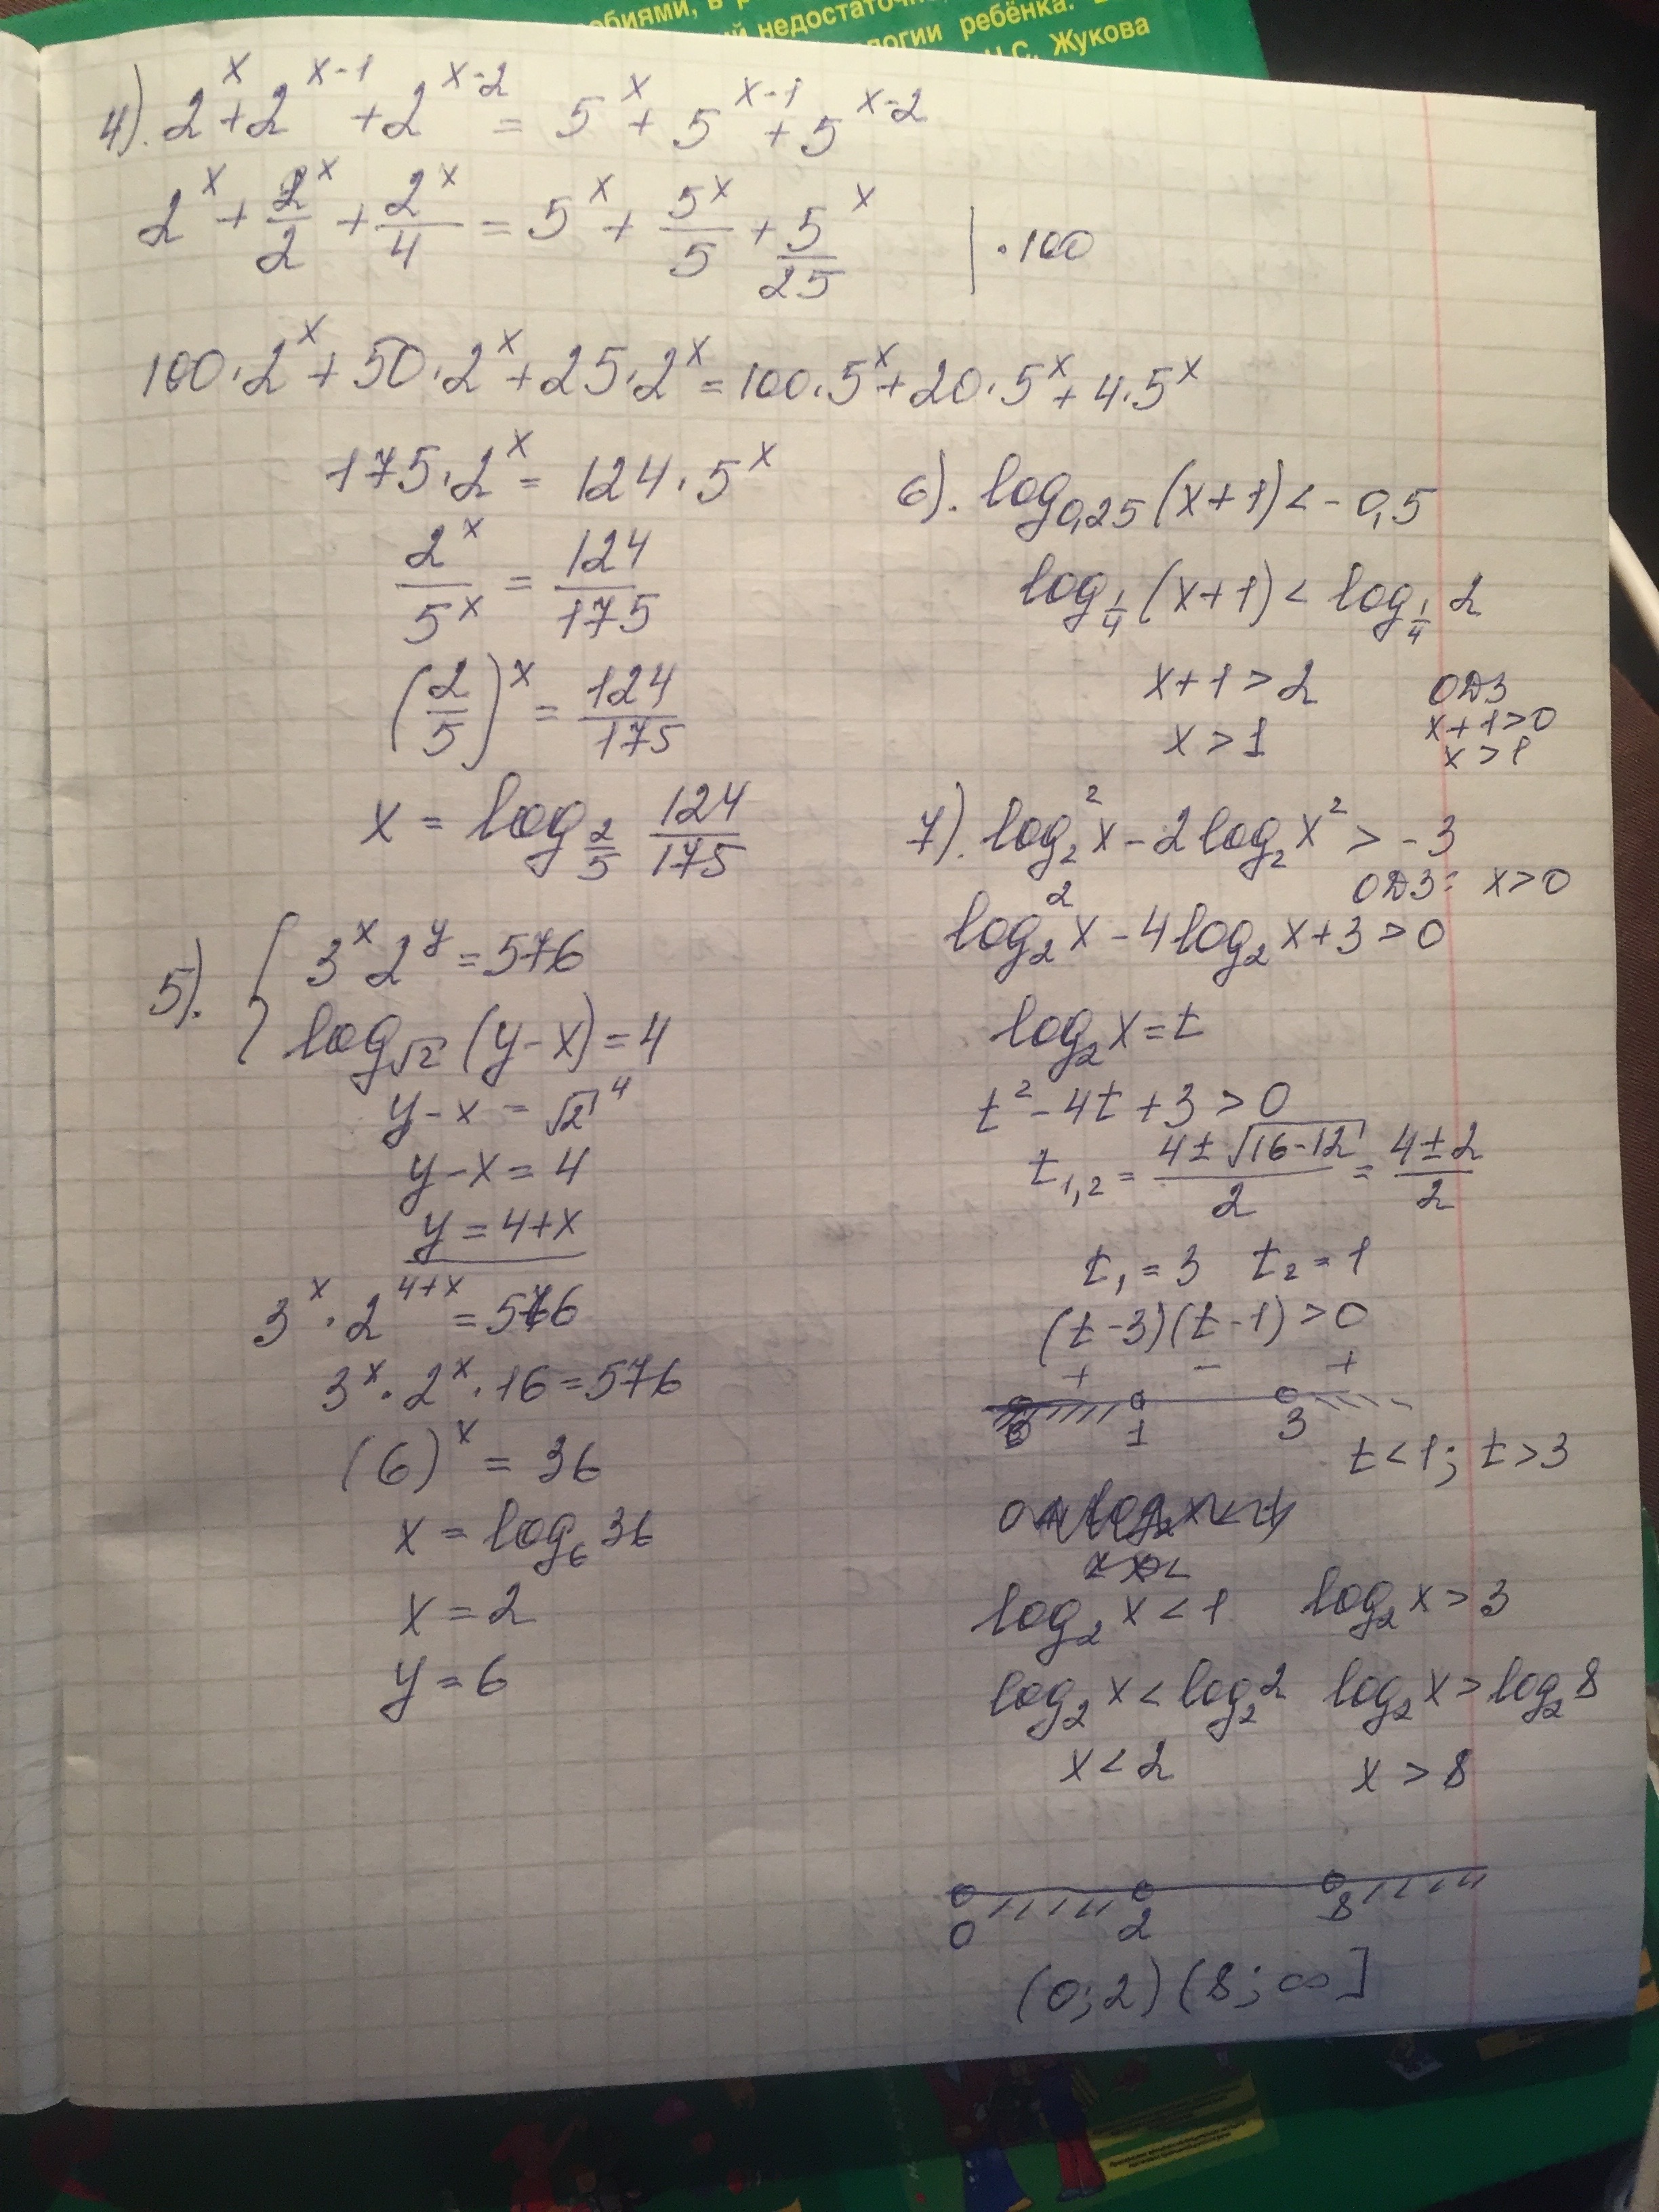 обиями, в р
й недостаточн
логии ребёнка.
Н.С. Жукова
4). 2^x + 2^(x-1) + 2^(x-2) = 5^x + 5^(x-1) + 5^(x-2)
2^x + 2^x/2 + 2^x/4 = 5^x + 5^x/5 + 5^x/25 | · 100
100·2^x + 50·2^x + 25·2^x = 100·5^x + 20·5^x + 4·5^x
175·2^x = 124·5^x
2^x/5^x = 124/175
(2/5)^x = 124/175
x = log_(2/5) 124/175
5). { 3^x 2^y = 576
log_√2 (y-x) = 4
y-x = √2^4
y-x = 4
y = 4+x
3^x · 2^(4+x) = 576
3^x · 2^x · 16 = 576
(6)^x = 36
x = log_6 36
x = 2
y = 6
6). log_0,25 (x+1) < -0,5
log_(1/4) (x+1) < log_(1/4) 2
x+1 > 2
x > 1
ОДЗ
x+1>0
x>1
7). log_2^2 x - 2 log_2 x^2 > -3
ОДЗ: x>0
log_2^2 x - 4 log_2 x + 3 > 0
log_2 x = t
t^2 - 4t + 3 > 0
t_1,2 = (4±√(16-12))/2 = (4±2)/2
t_1 = 3 t_2 = 1
(t-3)(t-1) > 0
+ - +
1 3
t<1; t>3
log_2 x < 1 log_2 x > 3
log_2 x < log_2 2 log_2 x > log_2 8
x < 2 x > 8
0 2 8
(0;2) (8;∞]